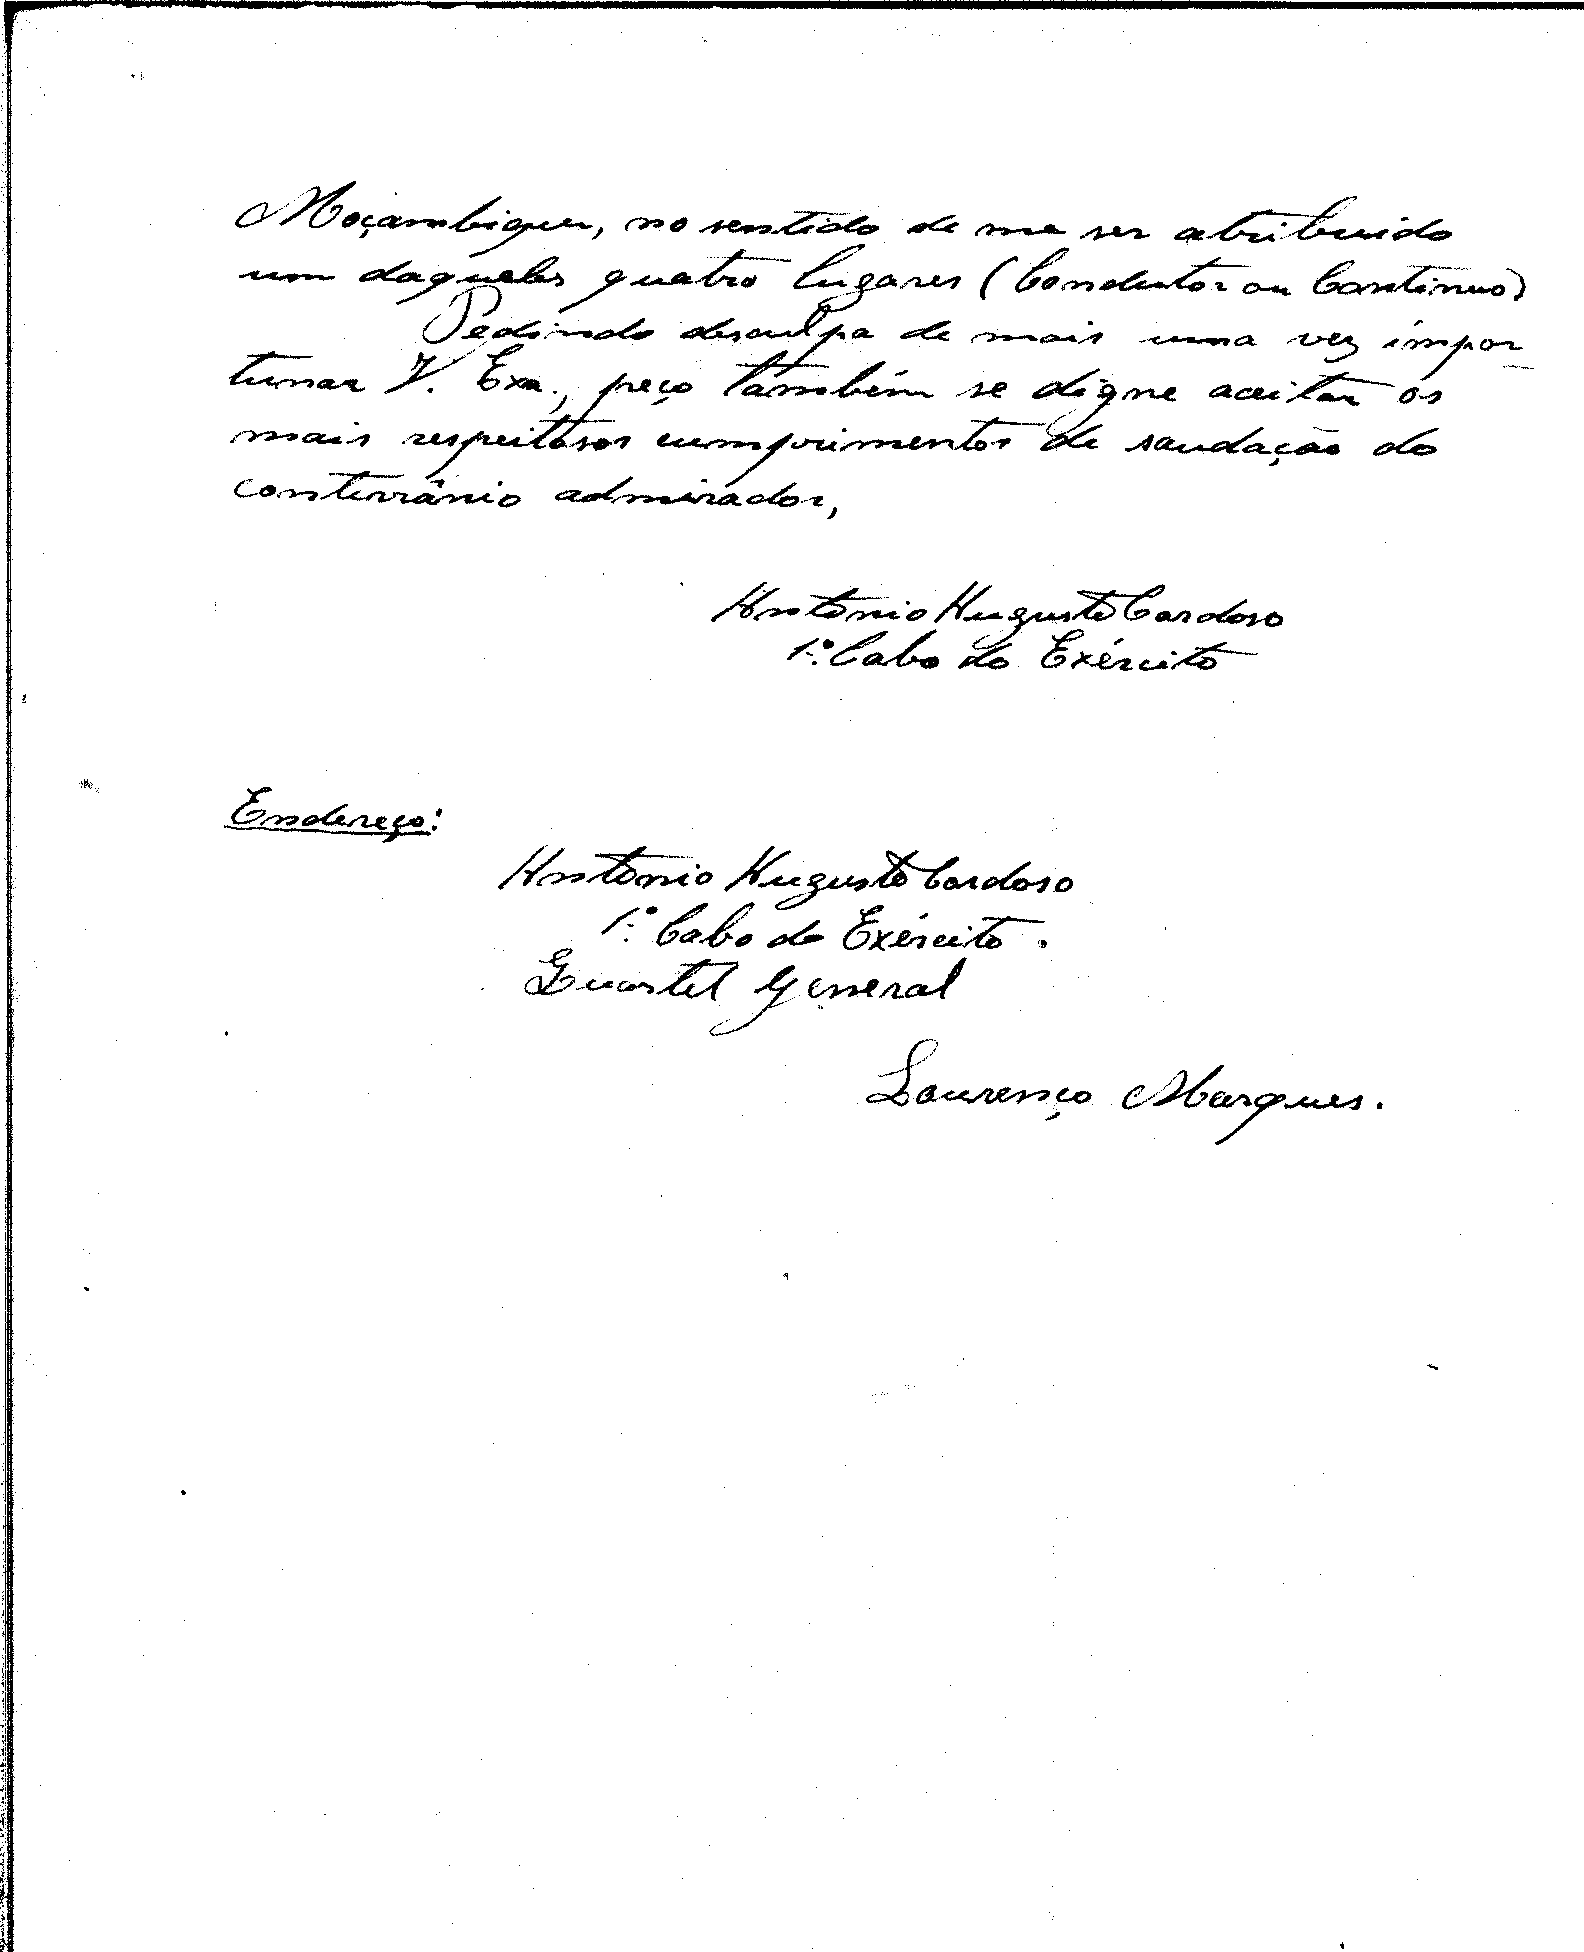 Moçambique, no sentido de me ser atribuido
um daqueles quatro lugares (Condutor ou Contínuo)
Pedindo desculpa de mais uma vez impor-
tunar V. Exa., peço também se digne aceitar os
mais respeitosos cumprimentos de saudação do
conterrânio admirador,
António Augusto Cardoso
1º. Cabo do Exército
Endereço:
António Augusto Cardoso
1º. Cabo do Exército.
Quartel General
Lourenço Marques.